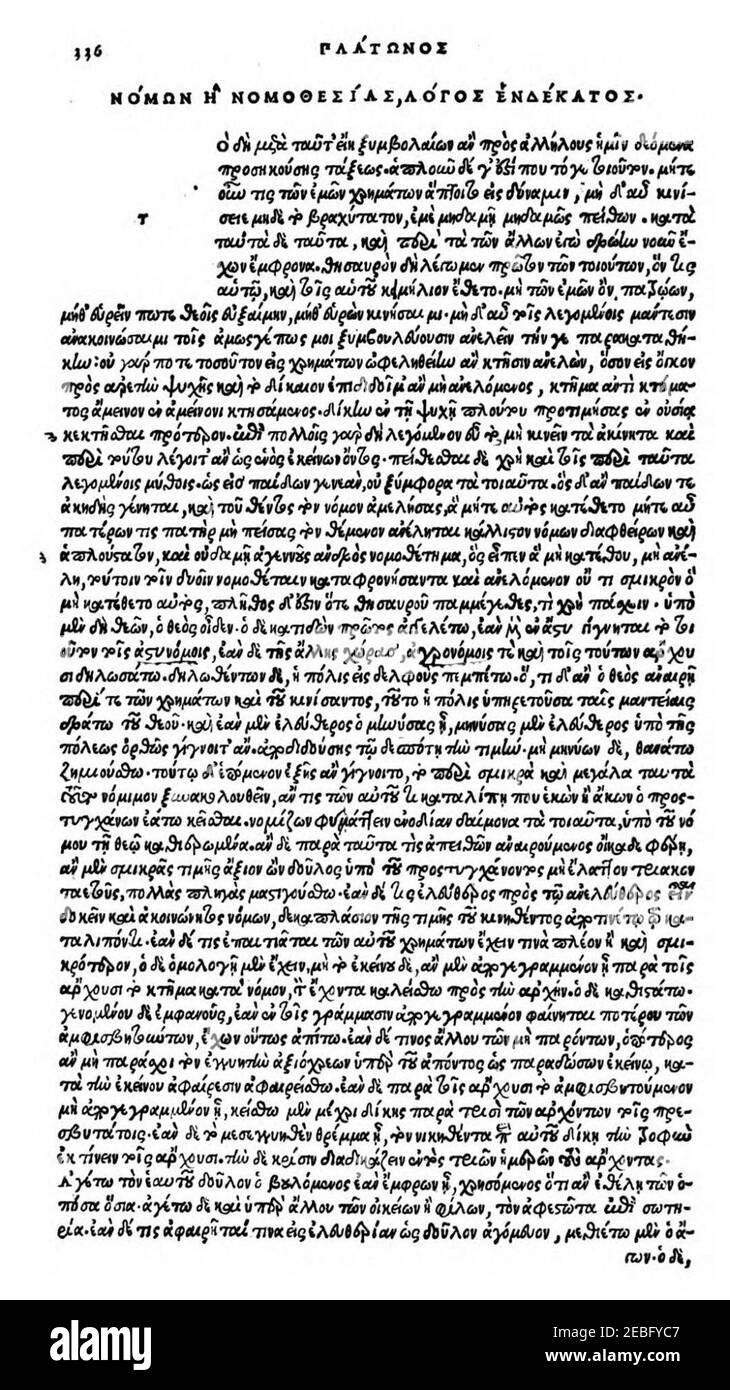 336 ΠΛΆΤΩΝΟΣ
ΝΌΜΩΝ Ἢ ΝΟΜΟΘΕΣΊΑΣ, ΛΌΓΟΣ ἙΝΔΈΚΑΤΟΣ.
Ὸ δὴ μετὰ ταῦτ' εἴη ξυμβολαίων ἂν πρὸς ἀλλήλους ἡμῖν δεόμενα
προσηκούσης τάξεως. ἁπλοῦν δέ γ' ἐστί που τό γε τοιοῦτον. μήτε
οὖν τις τῶν ἐμῶν χρημάτων ἅπτοιτο εἰς δύναμιν, μὴ δ' αὖ κινή-
σειε μηδὲ τὸ βραχύτατον, ἐμὲ μηδαμῆ μηδαμῶς πείθων. κατὰ
τ
ταὐτὰ δὲ ταῦτα, καὶ περὶ τὰ τῶν ἄλλων ἐγὼ δρῴην νοῦν ἔ-
χων ἔμφρονα. θησαυρὸν δὴ λέγωμεν πρῶτον τῶν τοιούτων, ὅν τις
αὑτῷ, καὶ τοῖς αὑτοῦ κειμήλιον ἔθετο. μὴ τῶν ἐμῶν ὂν πατέρων,
μήθ' εὑρεῖν ποτε θεοῖς εὐξαίμην, μήθ' εὑρὼν κινήσαιμι. μὴ δ' αὖ τοῖς λεγομένοις μάντεσιν
ἀνακοινώσαιμι τοῖς ἀμωσγέπως μοι ξυμβουλεύουσιν ἀνελεῖν τὴν γε παρακαταθή-
κην: οὐ γάρ ποτε τοσοῦτον εἰς χρημάτων ὠφεληθείην ἂν κτῆσιν ἀνελών, ὅσον εἰς ὄγκον
πρὸς ἀρετὴν ψυχῆς καὶ τὸ δίκαιον ἐπιδιδοῖμ' ἂν μὴ ἀνελόμενος, κτῆμα ἀντὶ κτήμα-
τος ἄμεινον ἐν ἀμείνονι κτησάμενος. δίκην ἐν τῇ ψυχῇ πλούτου προτιμήσας ἐν οὐσίᾳ
κεκτῆσθαι πρότερον. ἐπὶ πολλοῖς γὰρ δὴ λεγόμενον εὖ τὸ, μὴ κινεῖν τὰ ἀκίνητα καὶ
περὶ τούτου λέγοιτ' ἂν ὡς ἑνὸς ἐκείνων ὄντος. πείθεσθαι δὲ χρὴ καὶ τοῖς περὶ ταῦτα
λεγομένοις μύθοις. ὡς εἰς παίδων γενεὰν, οὐ ξύμφορα τὰ τοιαῦτα. ὃς δ' ἂν παίδων τε
ἀκηδὴς γένηται, καὶ τοῦ θέντος τὸν νόμον ἀμελήσας, ἃ μήτε αὐτὸς κατέθετο μήτε αὖ
πατέρων τις πατὴρ μὴ πείσας τὸν θέμενον ἀνέληται κάλλιστον νόμων διαφθείρων καὶ
ἁπλούστατον, καὶ οὐδαμῇ ἀγεννὲς ἀνδρὸς νομοθέτημα, ὃς εἶπεν ἃ μὴ κατέθου, μὴ ἀνέ-
λῃ, τούτοιν τοῖν δυοῖν νομοθέταιν καταφρονήσαντα καὶ ἀνελόμενον οὔ τι σμικρὸν ὃ
μὴ κατέθετο αὐτὸς, πλῆθος δ' ἔστιν ὅτε θησαυροῦ παμμέγεθες, τί χρὴ πάσχειν. ὑπὸ
μὲν δὴ θεῶν, ὁ θεὸς οἶδεν. ὁ δὲ κατιδὼν πρῶτος ἀγγελέτω, ἐὰν μὲν ἐν ἄστει γίγνηται τὸ τοι
οῦτον τοῖς ἀστυνόμοις, ἐὰν δὲ τῆς ἄλλης χώρας, ἀγρονόμοις τε καὶ τοῖς τούτων ἄρχου
σι δηλωσάτω. δηλωθέντων δὲ, ἡ πόλις εἰς δελφοὺς πεμπέτω. ὅ, τι δ' ἂν ὁ θεὸς ἀναιρῇ
περί τε τῶν χρημάτων καὶ τοῦ κινήσαντος, τοῦτο ἡ πόλις ὑπηρετοῦσα ταῖς μαντείαις
δράτω τοῦ θεοῦ. καὶ ἐὰν μὲν ἐλεύθερος ὁ μηνύσας ᾖ, μηνύσας μὲν ἐλεύθερος ὑπὸ τῆς
πόλεως ὀρθῶς γίγνοιτ' ἂν. ἀποδιδούσης τῷ δεσπότῃ τὴν τιμήν. μὴ μηνύων δὲ, θανάτῳ
ζημιούσθω. τούτῳ δ' ἑπόμενον ἑξῆς ἂν γίγνοιτο, τὸ περὶ σμικρὰ καὶ μεγάλα ταυτὸ
τοῦτο νόμιμον ξυνακολουθεῖν, ἄν τις τῶν αὑτοῦ τι καταλίπῃ που ἑκὼν ἢ ἄκων ὁ προσ-
τυγχάνων ἐάτω κεῖσθαι. νομίζων φυλάττειν ἐνοδίαν δαίμονα τὰ τοιαῦτα, ὑπὸ τοῦ νό
μου τῇ θεῷ καθιερωμένα. ἂν δὲ παρὰ ταῦτά τις ἀπειθῶν ἀναιρούμενος οἴκαδε φέρῃ,
ἂν μὲν σμικρᾶς τιμῆς ἄξιον ὢν δοῦλος ὑπὸ τοῦ προστυγχάνοντος μὴ ἔλαττον τριακον
ταετοῦς, πολλὰς πληγὰς μαστιγούσθω. ἐὰν δέ τις ἐλεύθερος πρὸς τῷ ἀνελεύθερος εἶναι
δοκεῖν καὶ ἀκοινώνητος νόμων, δεκαπλάσιον τῆς τιμῆς τοῦ κινηθέντος ἀποτινέτω τῷ κα-
ταλιπόντι. ἐὰν δέ τις ἐπαιτιᾶται τῶν αὑτοῦ χρημάτων ἔχειν τινὰ πλέον ἢ καὶ σμι-
κρότερον, ὁ δὲ ὁμολογῇ μὲν ἔχειν, μὴ τὸ ἐκείνου δὲ, ἂν μὲν ἀπογεγραμμένον ᾖ παρὰ τοῖς
ἄρχουσι τὸ κτῆμα κατὰ νόμον, τὸν ἔχοντα καλείσθω πρὸς τὴν ἀρχήν. ὁ δὲ καθιστάτω.
γενομένου δὲ ἐμφανοῦς, ἐὰν ἐν τοῖς γράμμασιν ἀπογεγραμμένον φαίνηται ποτέρου τῶν
ἀμφισβητούντων, ἔχων οὗτος ἀπίτω. ἐὰν δέ τινος ἄλλου τῶν μὴ παρόντων, ὁπότερος
ἂν μὴ παράσχῃ τὸν ἐγγυητὴν ἀξιόχρεων ὑπὲρ τοῦ ἀπόντος ὡς παραδώσων ἐκείνῳ, κα-
τὰ τὴν ἐκείνου ἀφαίρεσιν ἀφαιρείσθω. ἐὰν δὲ παρὰ τοῖς ἄρχουσι τὸ ἀμφισβητούμενον
μὴ ἀπογεγραμμένον ᾖ, κείσθω μὲν μέχρι δίκης παρὰ τρισὶ τῶν ἀρχόντων τοῖς πρε-
σβυτάτοις. ἐὰν δὲ τὸ μεσεγγυηθὲν θρέμμα ᾖ, τὸν νικηθέντα περὶ αὐτοῦ δίκῃ τὴν τροφὴν
ἐκτίνειν τοῖς ἄρχουσι. τὴν δὲ κρίσιν διαδικάζειν ἐντὸς τριῶν ἡμερῶν τοὺς ἄρχοντας.
Ἀγέτω τὸν ἑαυτοῦ δοῦλον ὁ βουλόμενος ἐὰν ἔμφρων ᾖ, χρησόμενος ὅτι ἂν ἐθέλῃ τῶν ὁ-
πόσα ὅσια. ἀγέτω δὲ καὶ ὑπὲρ ἄλλου τῶν οἰκείων ἢ φίλων, τὸν ἀφεστῶτα ἐπὶ σωτη-
ρίᾳ. ἐὰν δέ τις ἀφαιρῆταί τινα εἰς ἐλευθερίαν ὡς δοῦλον ἀγόμενον, μεθιέτω μὲν ὁ ἄ-
γων. ὁ δὲ,
alamy
Image ID: 2EBFYC7
www.alamy.com